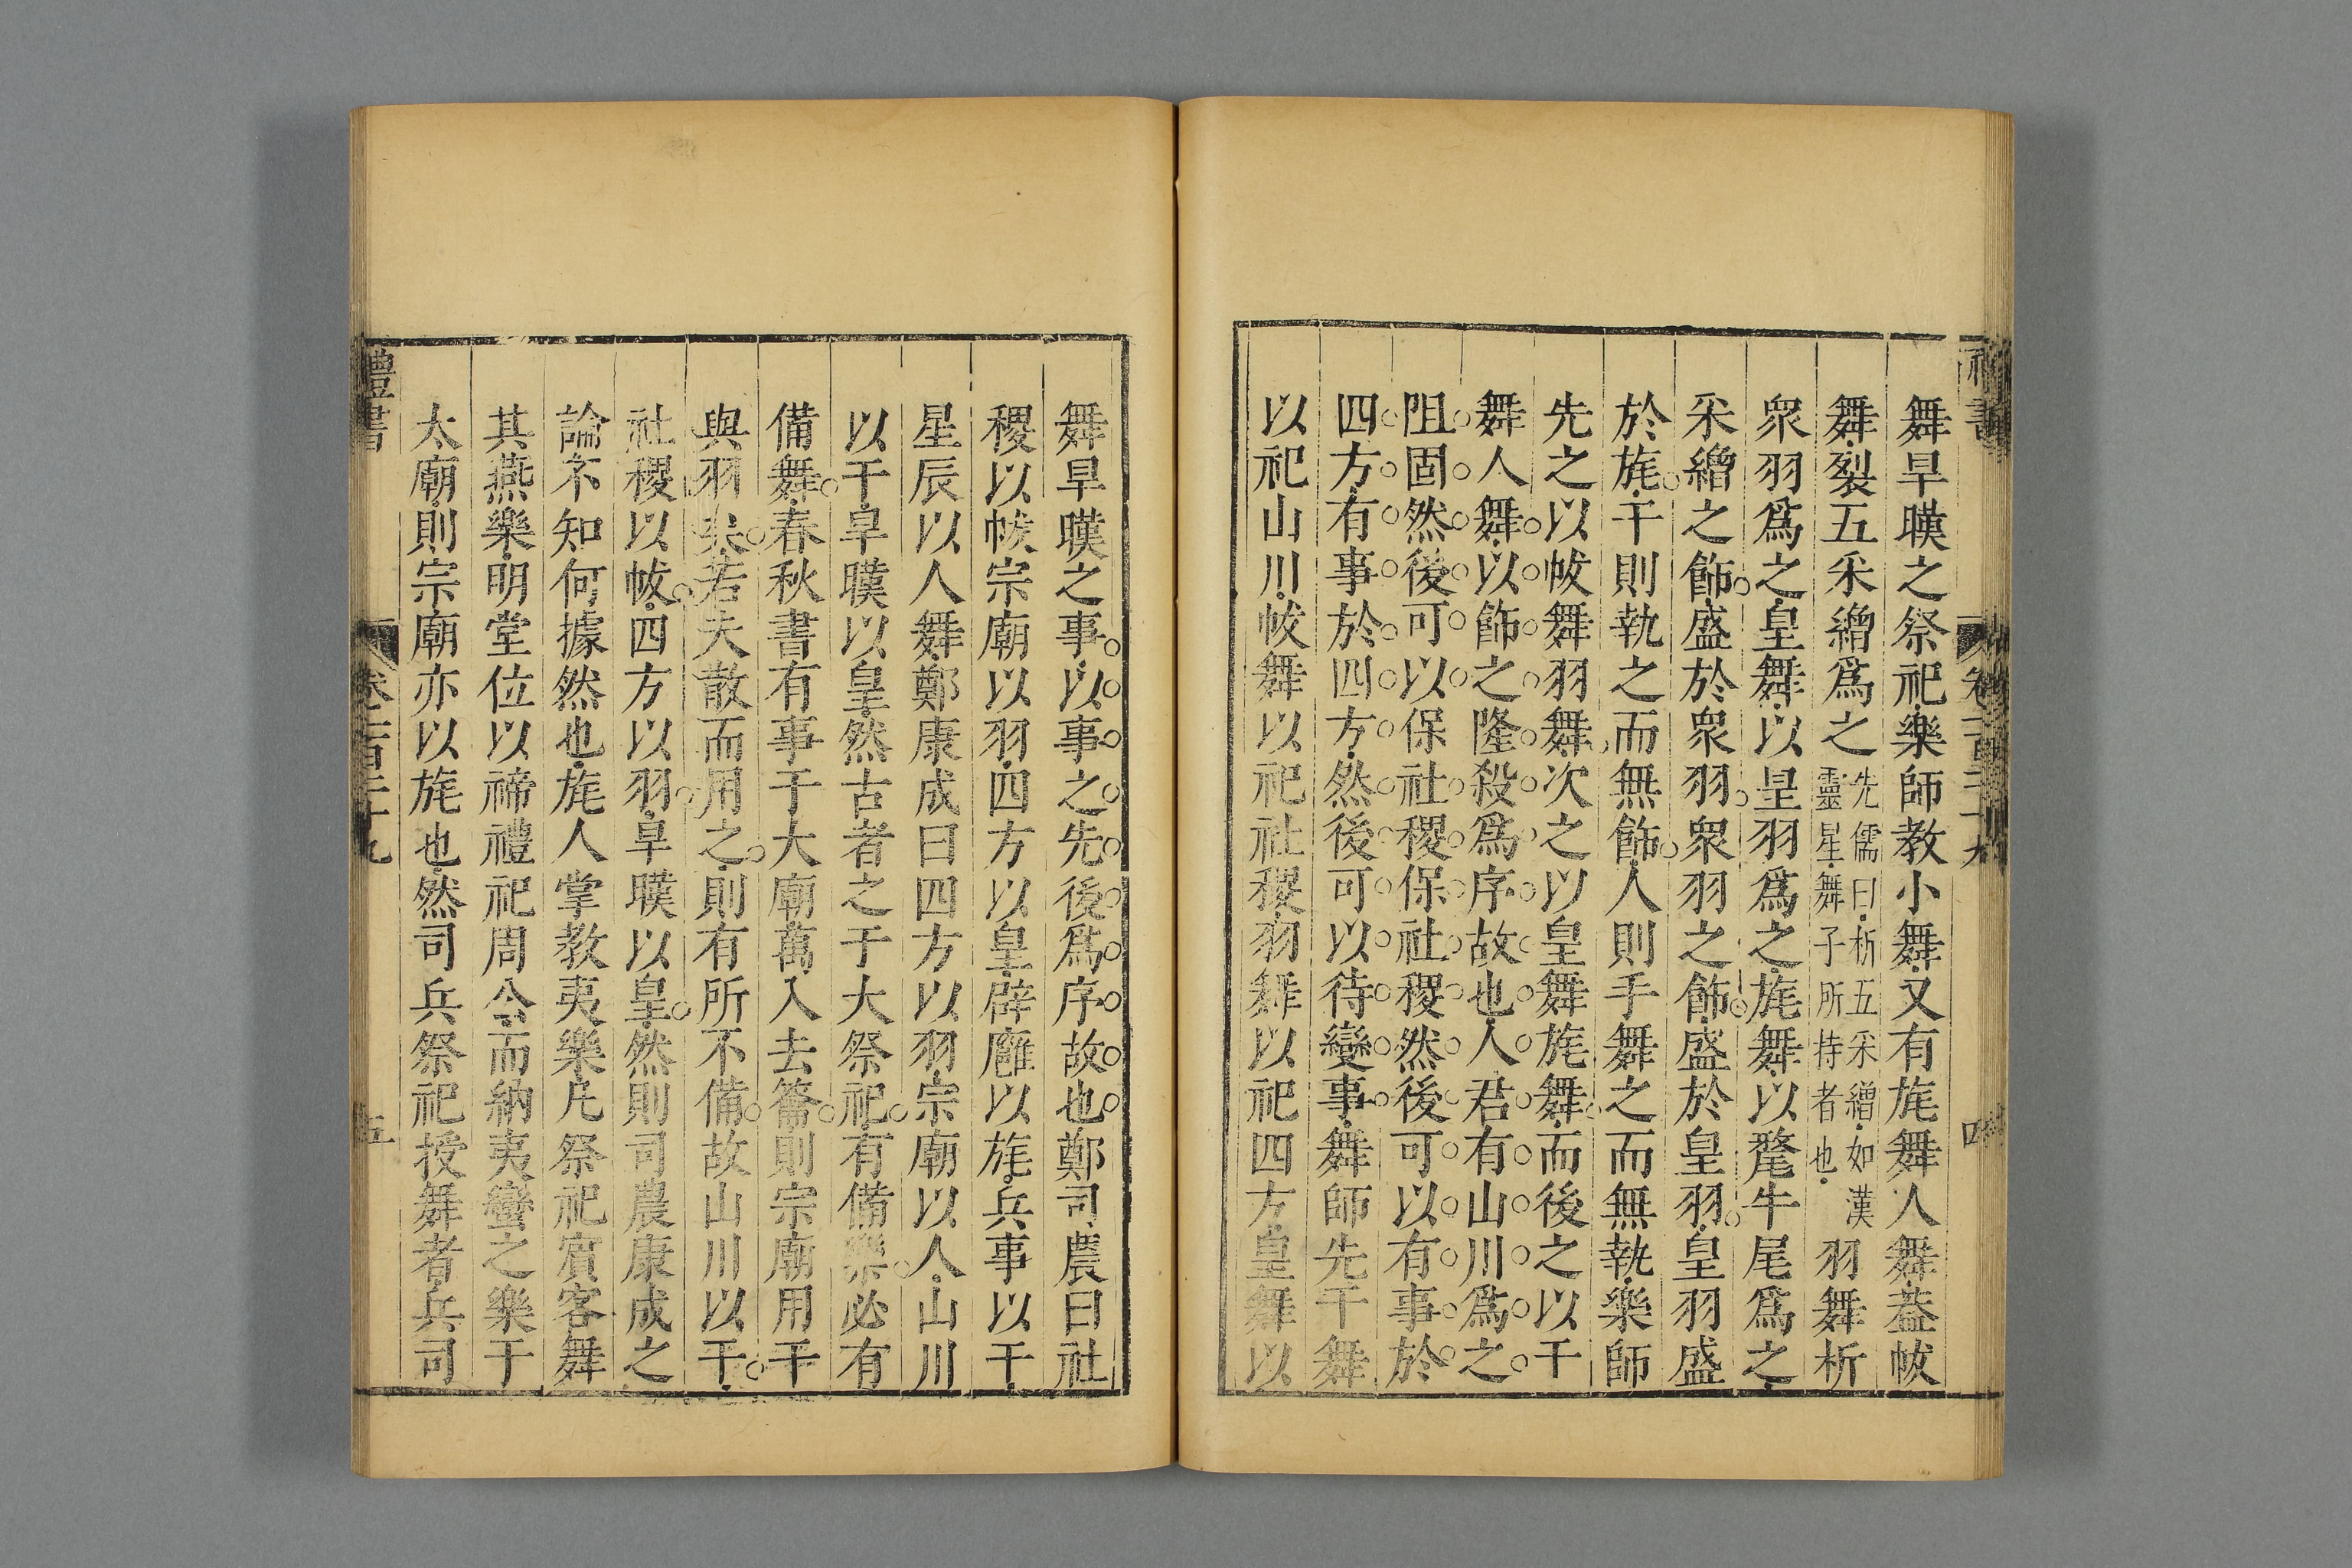 舞旱暵之祭祀樂師教小舞又有旄舞人舞葢帗
舞裂五采繒爲之先儒曰析五采繒如漢靈星舞子所持者也羽舞析
衆羽爲之皇舞以皇羽爲之旄舞以氂牛尾爲之
采繒之飾盛於衆羽衆羽之飾盛於皇羽皇羽盛
於旄干則執之而無飾人則手舞之而無執樂師
先之以帗舞羽舞次之以皇舞旄舞而後之以干
舞人舞以飾之隆殺爲序故也人君有山川爲之
阻固然後可以保社稷保社稷然後可以有事於
四方有事於四方然後可以待變事舞師先干舞
以祀山川帗舞以祀社稷羽舞以祀四方皇舞以
舞旱暵之事以事之先後爲序故也鄭司農曰社
稷以帗宗廟以羽四方以皇辟廱以旄兵事以干
星辰以人舞鄭康成曰四方以羽宗廟以人山川
以干旱暵以皇然古者之于大祭祀有備樂必有
備舞春秋書有事于大廟萬入去籥則宗廟用干
與羽矣若夫散而用之則有所不備故山川以干
社稷以帗四方以羽旱暵以皇然則司農康成之
論不知何據然也旄人掌教夷樂凡祭祀賓客舞
其燕樂明堂位以禘禮祀周公而納夷蠻之樂于
太廟則宗廟亦以旄也然司兵祭祀授舞者兵司
禮書
五